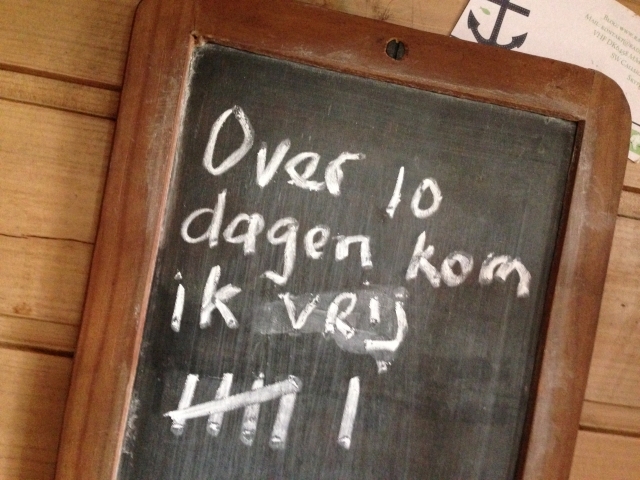 Over 10
dagen kom
ik vrij